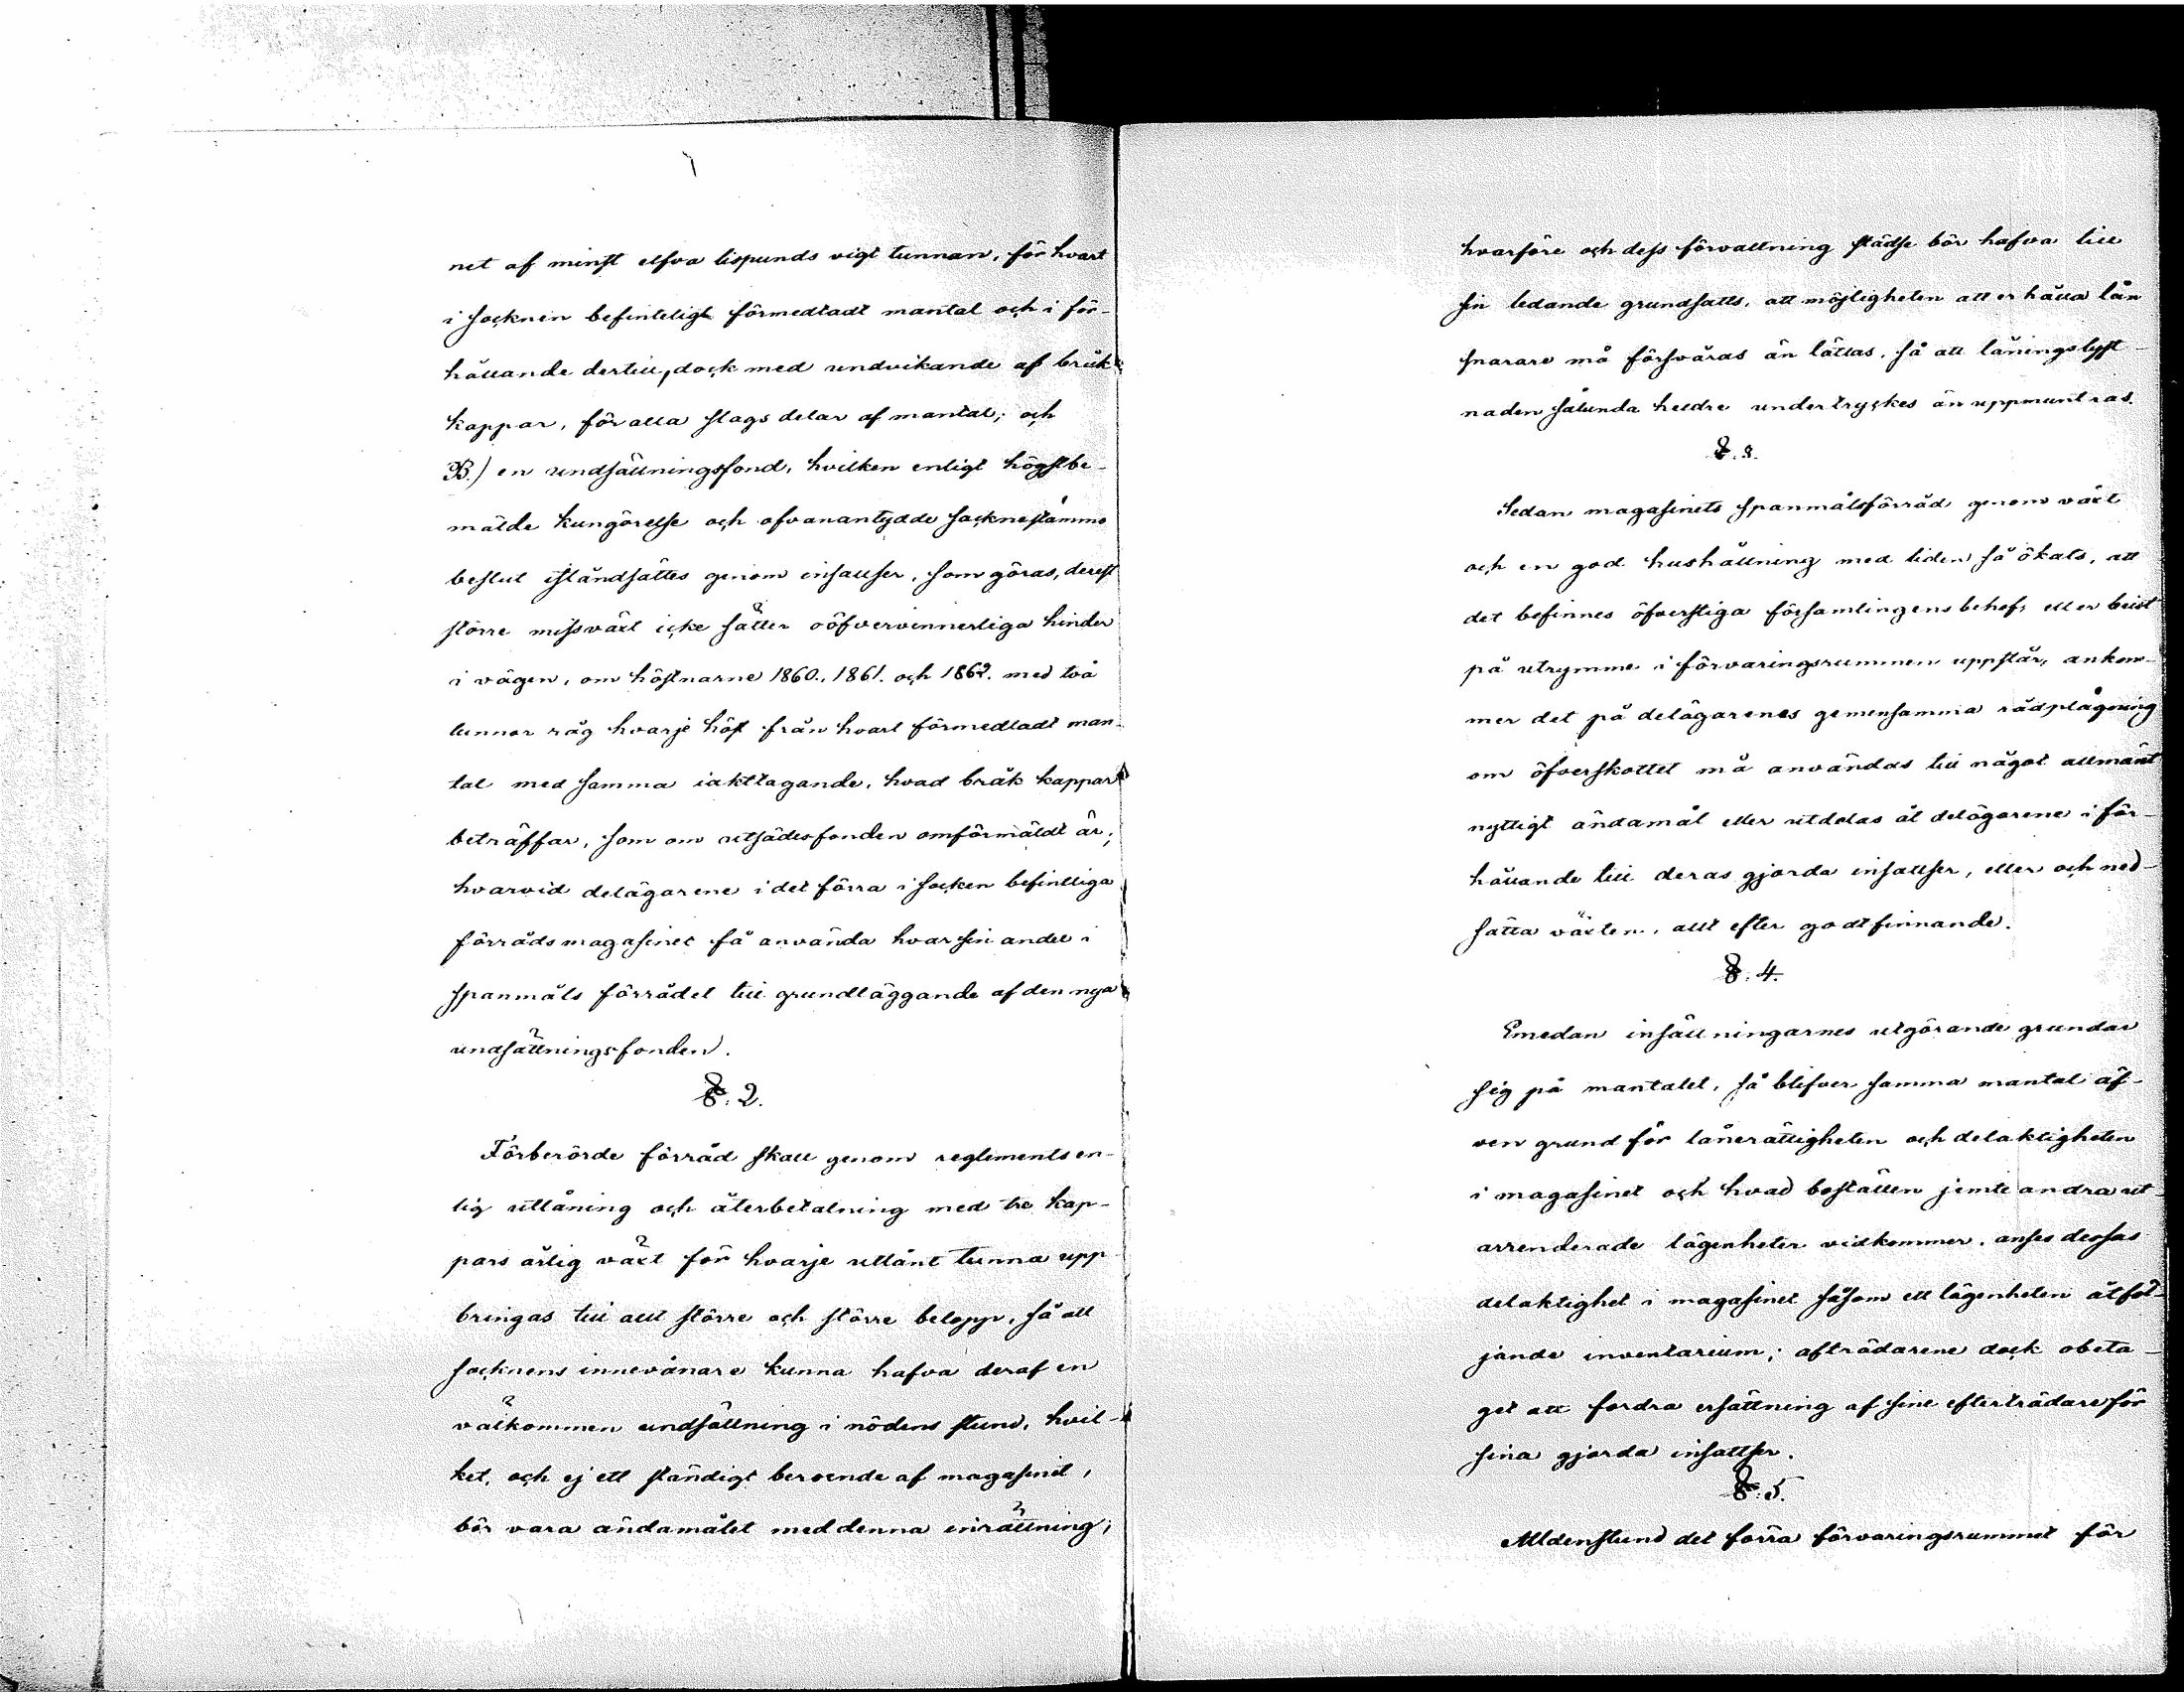 net af minst elfva lispunds vigt tunnan, för hvart
i socknen befinteligt förmedladt mantal och i för-
hållande dertill, dock med undvikande af bråk
kappar, för alla slags delar af mantal; och
B.) en undsättningsfond, hvilken enligt högstbe-
mälde kungörelse och ofvanantydde sockne stämmo
beslut iståndsättes genom insattser, som göras, derest
större missväxt icke sätter oöfvervinnerliga hinder
i vägen, om höstnarne 1860., 1861. och 1862. med två
tunnor råg hvarje höst från hvart förmedladt man-
tal med samma iakttagande, hvad bråk kappar
beträffar, som om utsädesfonden omförmäldt är;
hvarvid delägarene i det förra i socken befintliga
förrådsmagasinet få använda hvar sin andel i
spanmåls förrådet till grundläggande af den nya
undsättningsfonden.
§. 2.
Förberörde förråd skall genom reglementsen-
lig utlåning och återbetalning med tre kap-
pars årlig växt för hvarje utlånt tunna upp
bringas till allt större och större belopp, så att
socknens innevånare kunna hafva deraf en
välkommen undsättning i nödens stund, hvil-
ket, och ej ett ständigt beroende af magasinet,
bör vara ändamålet med denna inrättning;
hvarföre och dess förvaltning städse bör hafva till
sin ledande grundsatts, att möjligheten att erhålla lån
snarare må försvåras än lättas, så att låningslyst-
naden sålunda heldre undertryckes än uppmuntras.
§. 3.
Sedan magasinets spanmålsförråd genom växt
och en god hushållning med tiden så ökats, att
det befinnes öfverstiga församlingens behof, eller brist
på utrymme i förvaringsrummen uppstår, ankom-
mer det på delägarenes gemensamma rådplägning
om öfverskottet må användas till något allmänt
nyttigt ändamål eller utdelas åt delägarene i för-
hållande till deras gjorda insattser, eller och ned-
sätta växten, allt efter godtfinnande.
§. 4.
Emedan insättningarnes utgörande grundar
sig på mantalet, så blifver samma mantal äf-
ven grund för lånerättigheten och delaktigheten
i magasinet och hvad boställen jemte andra ut-
arrenderade lägenheter vidkommer, anses dessas
delaktighet i magasinet såsom ett lägenheten åtföl-
jande inventarium; afträdarene dock obeta-
get att fordra ersättning af sine efterträdare för
sina gjorda insattser.
§. 5.
Alldenstund det förra förvaringsrummet för